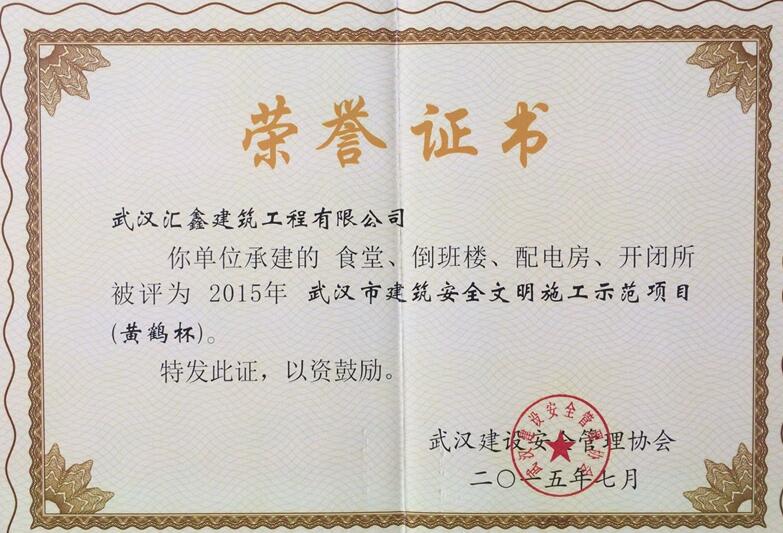 荣誉证书
武汉汇鑫建筑工程有限公司
你单位承建的 食堂、倒班楼、配电房、开闭所
被评为 2015年 武汉市建筑安全文明施工示范项目
(黄鹤杯)。
特发此证，以资鼓励。
武汉建设安全管理协会
二〇一五年七月
武汉建设安全管理协会